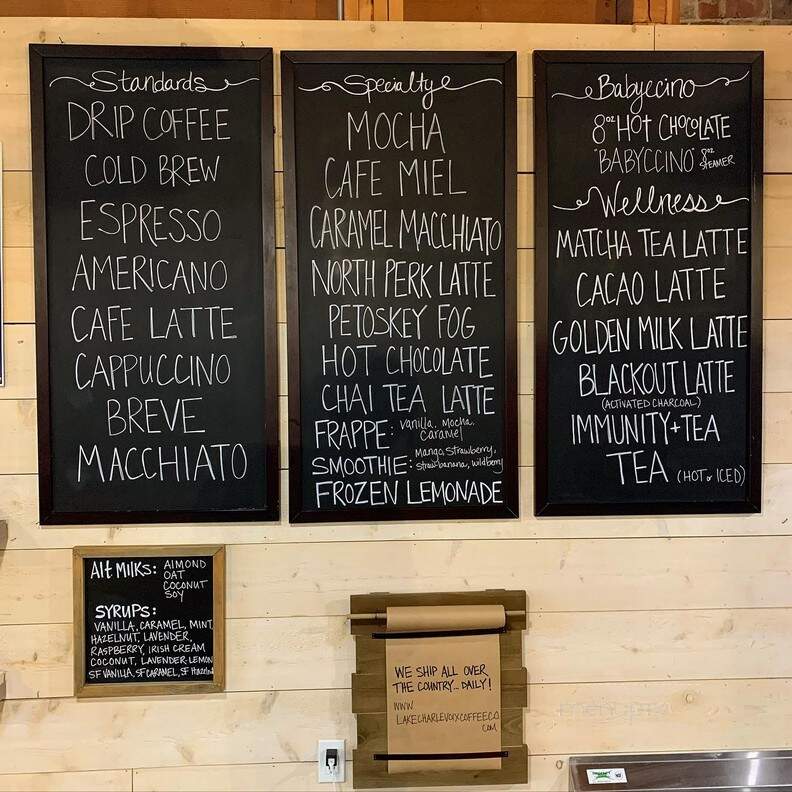 Standards
DRIP COFFEE
COLD BREW
ESPRESSO
AMERICANO
CAFE LATTE
CAPPUCCINO
BREVE
MACCHIATO
Specialty
MOCHA
CAFE MIEL
CARAMEL MACCHIATO
NORTH PERK LATTE
PETOSKEY FOG
HOT CHOCOLATE
CHAI TEA LATTE
FRAPPE: vanilla, mocha,
caramel
SMOOTHIE: Mango, strawberry,
straw-banana, wildberry
FROZEN LEMONADE
Babyccino
8oz HOT CHOCOLATE
"BABYCCINO" 8oz
STEAMER
Wellness
MATCHA TEA LATTE
CACAO LATTE
GOLDEN MILK LATTE
BLACKOUT LATTE
(ACTIVATED CHARCOAL)
IMMUNITY+TEA
TEA (HOT or ICED)
Alt MILKS: ALMOND
OAT
COCONUT
SOY
SYRUPS:
VANILLA, CARAMEL, MINT,
HAZELNUT, LAVENDER,
RASPBERRY, IRISH CREAM
COCONUT, LAVENDER-LEMON
SF VANILLA, SF CARAMEL, SF Hazeln
WE SHIP ALL OVER
THE COUNTRY... DAILY!
WWW.
LAKECHARLEVOIXCOFFEECO.
COM